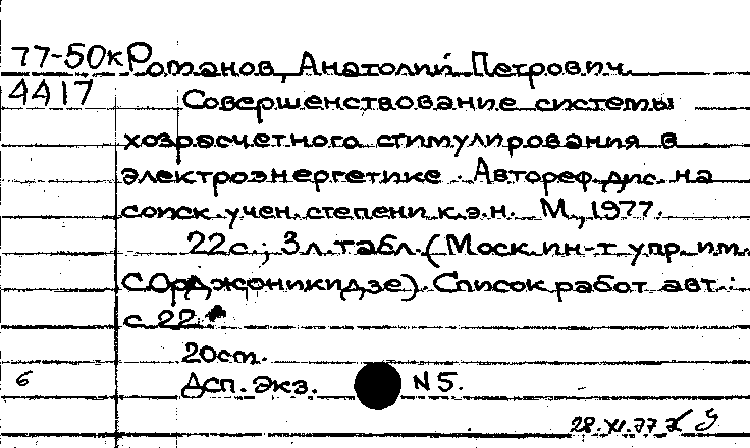 77-50к Романов, Анатолий Петрович.
4417 Совершенствование системы
хозрасчетного стимулирования в
электроэнергетике. Автореф. дис. на
соиск. учен. степени к.э.н. М., 1977.
22с.; 3л.табл. (Моск. ин-т упр. им.
С.Орджоникидзе). Список работ авт.:
с.22
20ст.
6 Дсп. Экз. N5.
28.XI.77